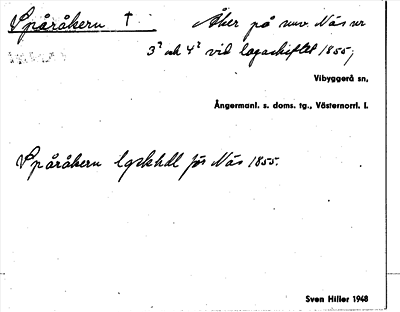 Spåråkern † Åker på nuv. Näs nr
3² och 4² vid lagaskiftet 1855,
Vibyggerå sn,
Ångermanl. s. doms. tg., Västernorrl. l.
Spåråkern lgskhdl för Näs 1855.
Sven Hiller 1948